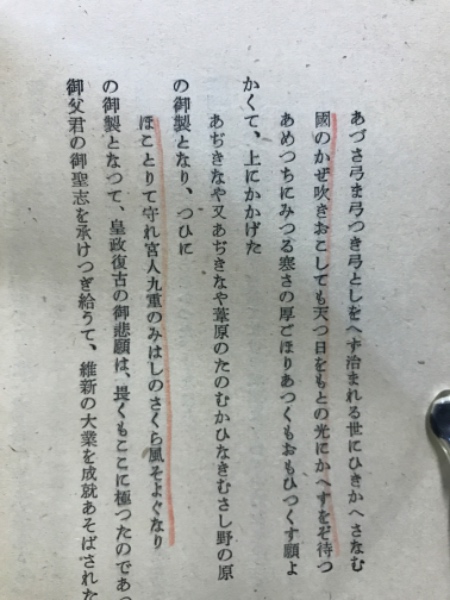 あづさ弓ま弓つき弓としをへず治まれる世にひきかへさなむ
國のかぜ吹きおこしても天つ日をもとの光にかへすをぞ待つ
あめつちにみつる寒さの厚ごほりあつくもおもひつくす願よ
かくて、上にかかげた
あぢきなや又あぢきなや葦原のたのむかひなきむさし野の原
の御製となり、つひに
ほことりて守れ宮人九重のみはしのさくら風そよぐなり
の御製となつて、皇政復古の御悲願は、畏くもここに極つたのであつ
御父君の御聖志を承けつぎ給うて、維新の大業を成就あそばされた